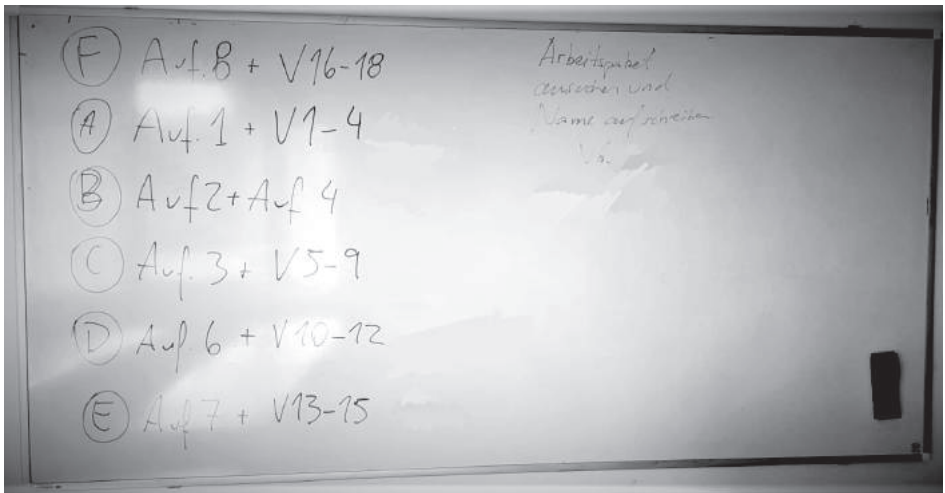 F Auf. 8 + V16-18
A Auf. 1 + V1-4
B Auf 2 + Auf 4
C Auf. 3 + V5-9
D Auf. 6 + V10-12
E Auf 7 + V13-15
Arbeitspaket
aussuchen und
Name aufschreiben